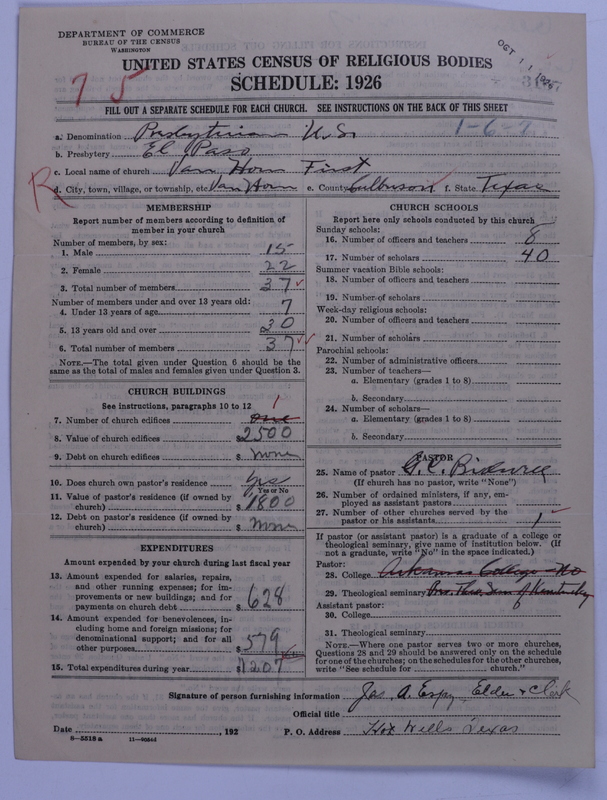 DEPARTMENT OF COMMERCE
BUREAU OF THE CENSUS
WASHINGTON
OCT 11 1926
UNITED STATES CENSUS OF RELIGIOUS BODIES
SCHEDULE: 1926
75
FILL OUT A SEPARATE SCHEDULE FOR EACH CHURCH. SEE INSTRUCTIONS ON THE BACK OF THIS SHEET
a. Denomination Presbyterian U.S. 1-6-7
b. Presbytery El Paso
c. Local name of church Van Horn First
R
d. City, town, village, or township, etc. Van Horn e. County Culberson f. State Texas
MEMBERSHIP
Report number of members according to definition of
member in your church
Number of members, by sex:
1. Male 15
2. Female 22
3. Total number of members 37
Number of members under and over 13 years old:
4. Under 13 years of age 7
5. 13 years old and over 30
6. Total number of members 37
NOTE.—The total given under Question 6 should be the
same as the total of males and females given under Question 3.
CHURCH BUILDINGS
See instructions, paragraphs 10 to 12
7. Number of church edifices one 1
8. Value of church edifices $2500
9. Debt on church edifices $ None
10. Does church own pastor's residence yes
Yes or No
11. Value of pastor's residence (if owned by
church) $1800
12. Debt on pastor's residence (if owned by
church) $ None
EXPENDITURES
Amount expended by your church during last fiscal year
13. Amount expended for salaries, repairs,
and other running expenses; for im-
provements or new buildings; and for
payments on church debt $628
14. Amount expended for benevolences, in-
cluding home and foreign missions; for
denominational support; and for all
other purposes $579
15. Total expenditures during year $1207
CHURCH SCHOOLS
Report here only schools conducted by this church
Sunday schools:
16. Number of officers and teachers 8
17. Number of scholars 40
Summer vacation Bible schools:
18. Number of officers and teachers
19. Number of scholars
Week-day religious schools:
20. Number of officers and teachers
21. Number of scholars
Parochial schools:
22. Number of administrative officers
23. Number of teachers—
a. Elementary (grades 1 to 8)
b. Secondary
24. Number of scholars—
a. Elementary (grades 1 to 8)
b. Secondary
PASTOR
25. Name of pastor G.C. Bidwell
(If church has no pastor, write "None")
26. Number of ordained ministers, if any, em-
ployed as assistant pastors
27. Number of other churches served by the
pastor or his assistants 1
If pastor (or assistant pastor) is a graduate of a college or
theological seminary, give name of institution below. (If
not a graduate, write "No" in the space indicated.)
Pastor:
28. College Arkansas College - No
29. Theological seminary Pres. Theo. Sem of Kentucky
Assistant pastor:
30. College
31. Theological seminary
NOTE.—Where one pastor serves two or more churches,
Questions 28 and 29 should be answered only on the schedule
for one of the churches; on the schedules for the other churches,
write "See schedule for church."
Signature of person furnishing information Jas. A. Espy, Elder & Clerk
Official title
Date , 192 P. O. Address Hot Wells Texas
8-5518 a 11-9054d